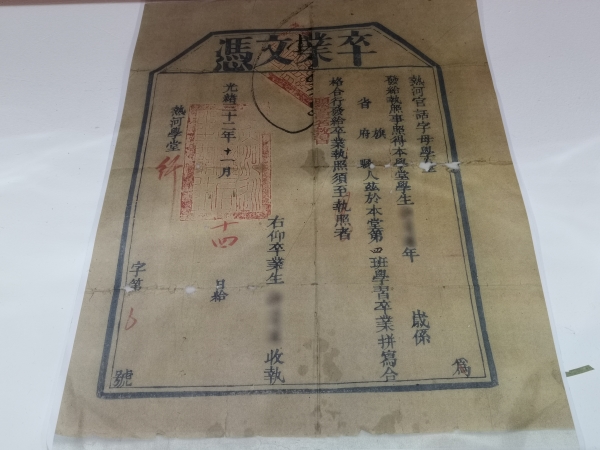 卒業文憑
熱河官話字母學堂 為
發給執照事照得本學堂學生 年 歲係
省 府 旗 縣人茲於本堂第四班學習卒業拼寫合
格合行發給卒業執照須至執照者
右仰卒業生 收執
光緒三十二年十一月十四日給
熱河學堂
字第6號